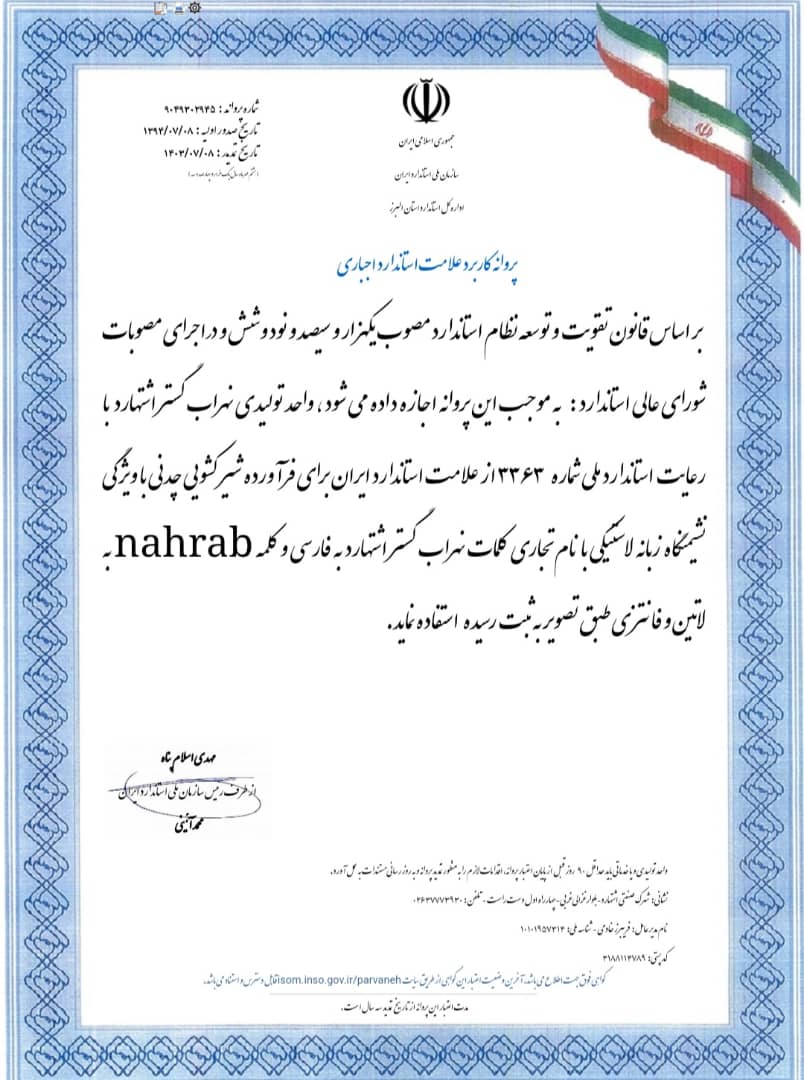 جمهوری اسلامی ایران
سازمان ملی استاندارد ایران
اداره کل استاندارد استان البرز
شماره پروانه : ۹۰۴۹۳۰۲۹۳۵
تاریخ صدور اولیه : ۱۳۹۴/۰۷/۰۸
تاریخ تمدید : ۱۴۰۳/۰۷/۰۸
پروانه کاربرد علامت استاندارد اجباری
بر اساس قانون تقویت و توسعه نظام استاندارد مصوب یکهزار و سیصد و نود و شش و در اجرای مصوبات
شورای عالی استاندارد : به موجب این پروانه اجازه داده می شود ، واحد تولیدی نهراب گستر اشتهارد با
رعایت استاندارد ملی شماره ۳۳۶۳ از علامت استاندارد ایران برای فرآورده شیر کشویی چدنی با ویژگی
نشیمنگاه زبانه لاستیکی با نام تجاری کلمات نهراب گستر اشتهارد به فارسی و کلمه nahrab به
لاتین و فانتزی طبق تصویر به ثبت رسیده استفاده نماید.
مهدی اسلام پناه
از طرف رییس سازمان ملی استاندارد ایران
محمد آئینی
واحد تولیدی و یا خدماتی باید حداقل ۹۰ روز قبل از پایان اعتبار پروانه، اقدامات لازم را به منظور تمدید پروانه و به روز رسانی مستندات به عمل آورد.
نشانی: شهرک صنعتی اشتهارد- بلوار غزالی غربی - چهارراه اول دست راست - تلفن: ۰۲۶۳۷۷۷۳۹۳۰
نام مدیرعامل: فریبرز خادمی - شناسه ملی: ۱۰۱۰۱۹۵۷۳۱۴
کد پستی: ۳۱۸۸۱۱۴۷۸۹
گواهی فوق جهت اطلاع می باشد، آخرین وضعیت اعتبار این گواهی از طریق سایت isom.inso.gov.ir/parvaneh قابل دسترس و استناد می باشد.
مدت اعتبار این پروانه از تاریخ تمدید سه سال است.